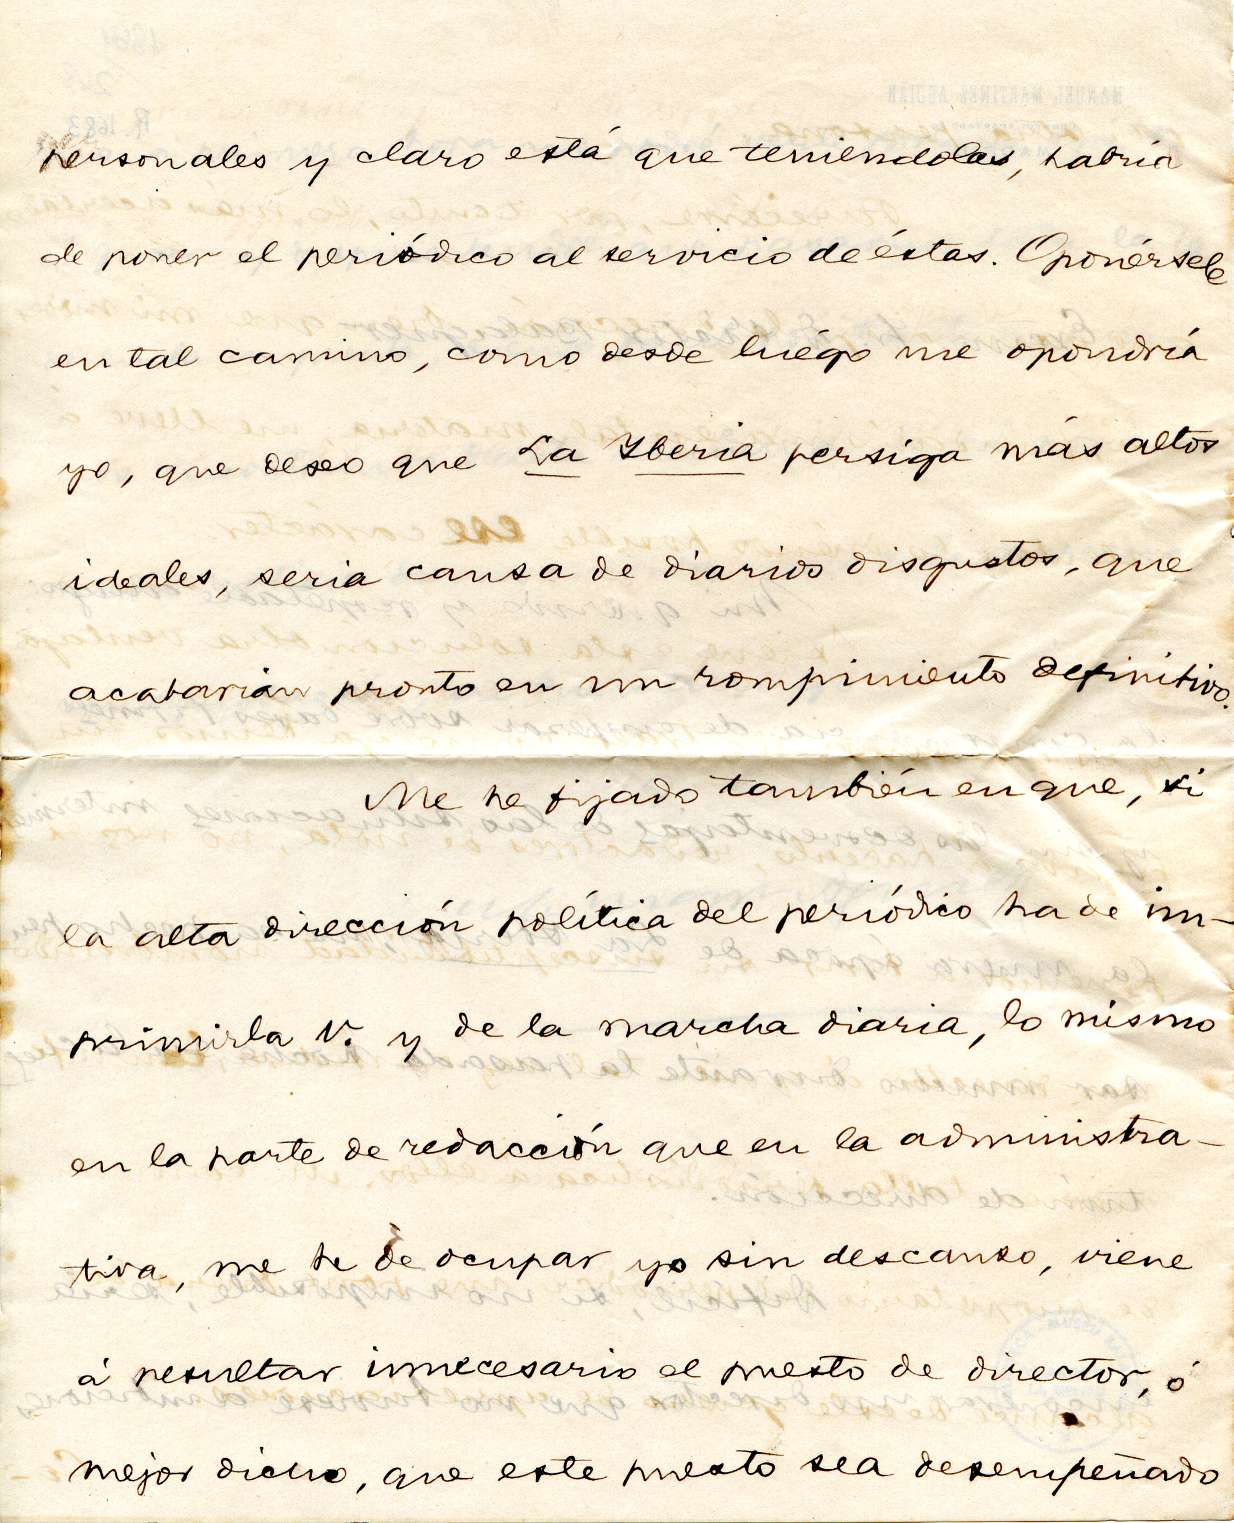 personales y claro está que teniéndolas, habría
de poner el periódico al servicio de éstas. Oponérsele
en tal camino, como desde luégo me opondría
yo, que deseo que La Iberia persiga más altos
ideales, seria causa de diarios disgustos, que
acabarían pronto en un rompimiento definitivo.
Me he fijado también en que, si
la alta dirección política del periódico ha de im-
primirla V. y de la marcha diaria, lo mismo
en la parte de redacción que en la administra-
tiva, me he de ocupar yo sin descanso, viene
á resultar innecesario el puesto de director, ó
mejor dicho, que este puesto sea desempeñado